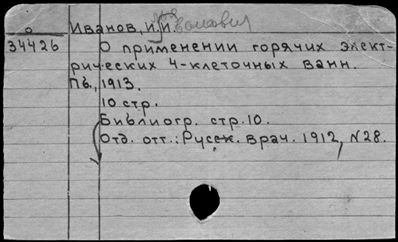 Иванов, И.И.
34426 О применении горячих элект-
рических 4-клеточных ванн.
Пб., 1913.
10 стр.
Библиогр. стр. 10.
Отд. отт.: Русск. врач. 1912, №28.